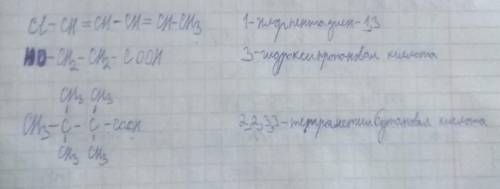 Cl - CH = CH - CH = CH - CH₃ 1-хлорпентадиен-1,3
HO - CH₂ - CH₂ - COOH 3-гидроксипропановая кислота
CH₃ CH₃
CH₃ - C - C - COOH 2,2,3,3-тетраметилбутановая кислота
CH₃ CH₃